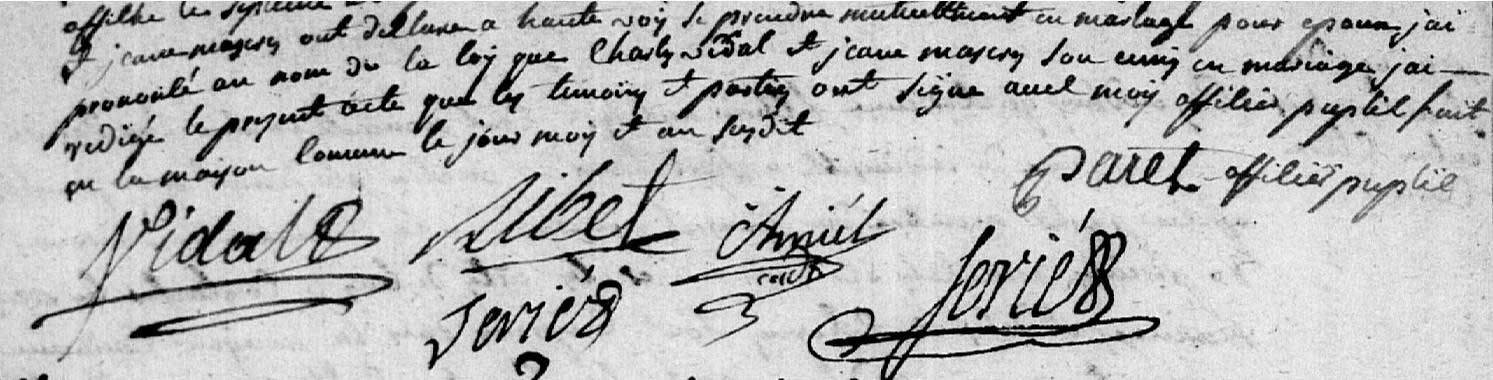 et jeane mascry ont desclare a haute voix se prendre mutuellement en mariage pour epoux jai
prononcé au nom de la loy que Charly vidal et jeane mascry son uniy en mariage jai
redigé le present acte que les temoins et partiey ont signe avec moy officier puplic fait
en la maison Comune le jour moiy et an susdit
Paret officier puplic
Vidal Ribet Amiél Serié
Serié